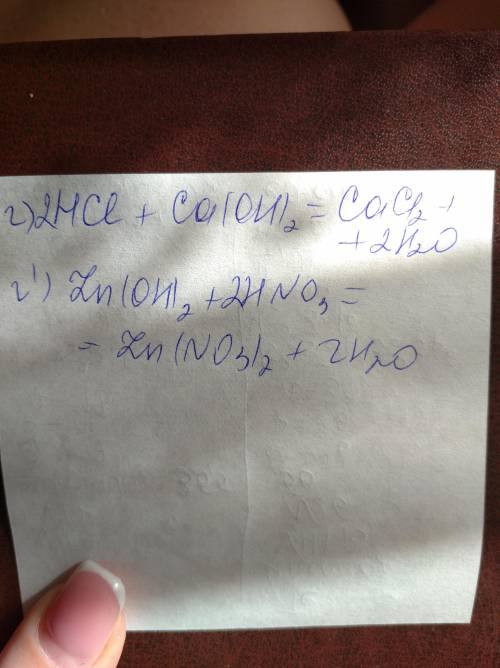 г) 2HCl + Ca(OH)₂ = CaCl₂ +
+ 2H₂O
г') Zn(OH)₂ + 2HNO₃ =
= Zn(NO₃)₂ + 2H₂O